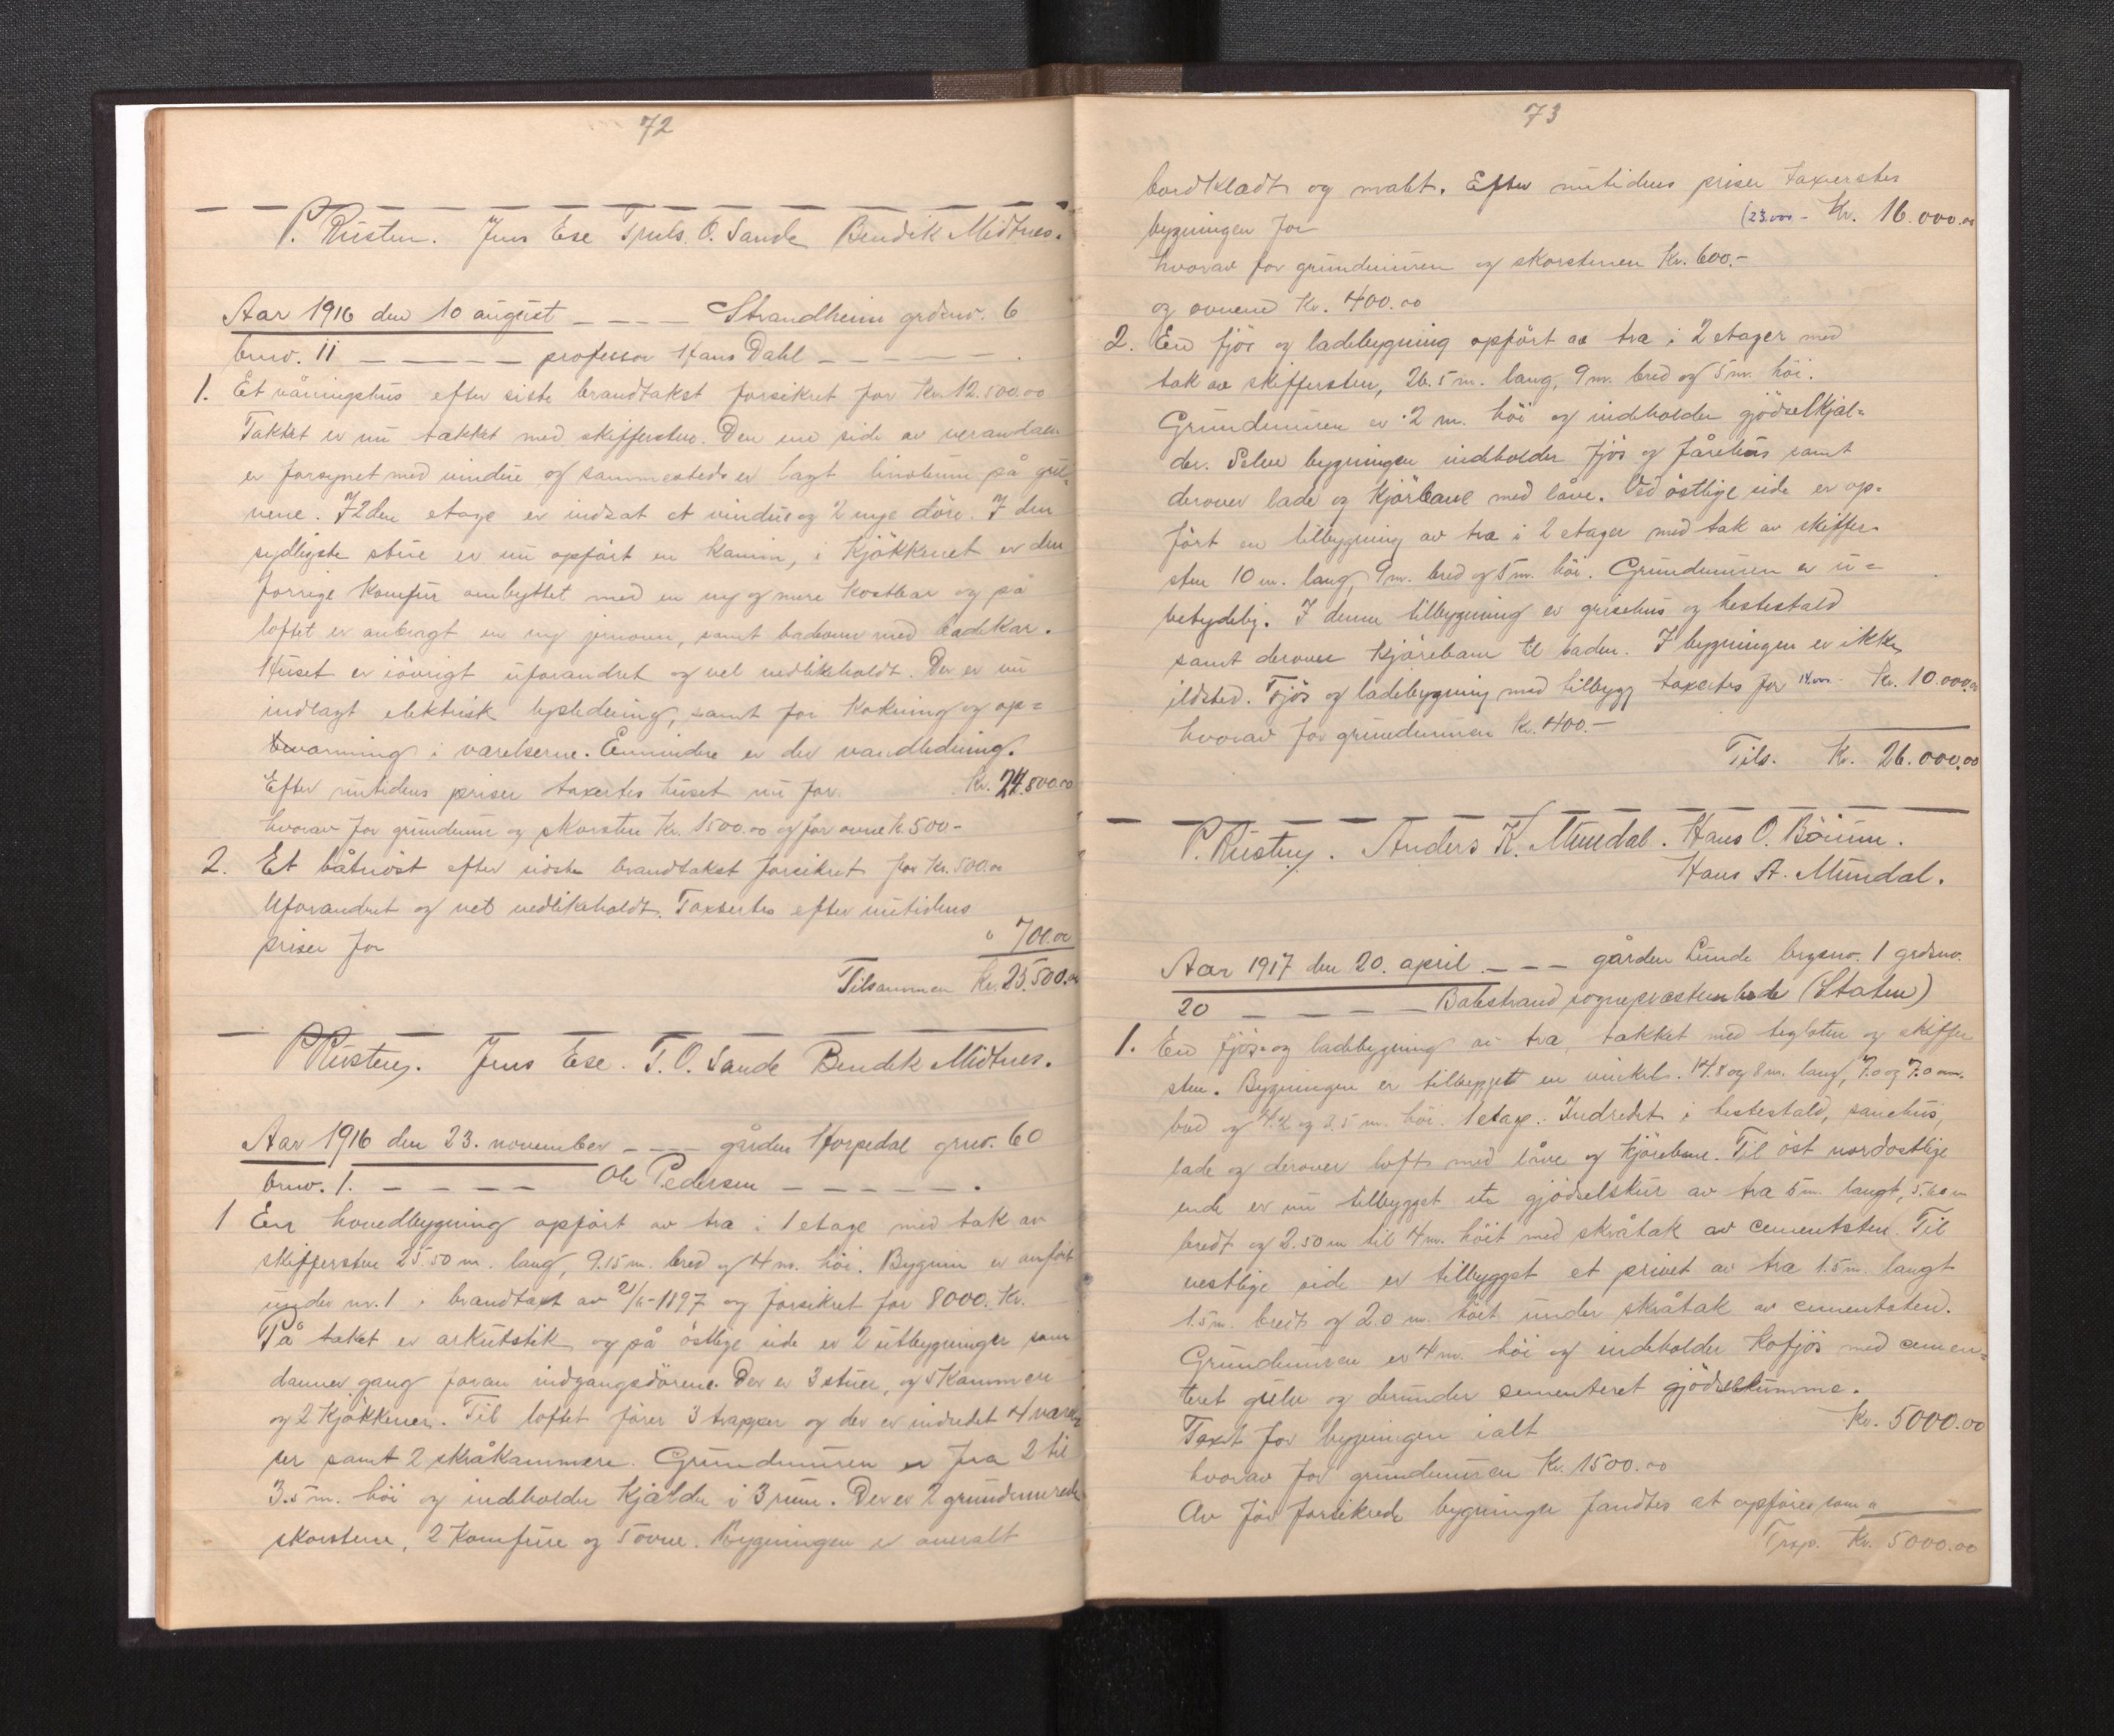 72
P. Rusten. Jens Ese Truls. O. Sande Bendik Midtnes.
Aar 1916 den 10 august _ _ _ _ Strandheim grdsnv. 6
brnv. 11 _ _ _ _ _ professor Hans Dahl _ _ _ _ _ .
1. Et våningshus efter siste brandtakst forsikret for Kr. 12.500.00
Taket er nu tækket med skiffersten. Den ene side av verandaen
er forsynet med vindu og sammesteds er lagt linoleum på gul-
vene. I 2den etage er indsat et vindu og 2 nye döre. I den
sydligste stue er nu opfört en kamin, i kjökkenet er den
forrige komfur ombyttet med en ny og mere kostbar og på
loftet er anbragt en ny jernovn, samt badeovn med badekar.
Huset er iövrigt uforandret og vel vedlikeholdt. Der er nu
indlagt elektrisk lysledning, samt for kokning og op=
varmning i værelserne. Envindere er der vandledning.
Efter nutidens priser taxertes huset nu for. Kr. 24.800.00
hvorav for grundmur og skorsten Kr. 1500.00 og for ovne K. 500-
2. Et båtnöst efter sidste brandtakst forsikret for Kr. 500.00
Uforandret og vel vedlikeholdt. Taxsertes efter nutidens
priser for " 700.00
Tilsammen Kr. 25.500.00
P Rusten. Jens Ese. T. O. Sande Bendik Midtnes.
Aar 1916 den 23. november _ _ _ gården Horpedal grnv. 60
brnv. 1. _ _ _ _ Ole Pedersen _ _ _ _ _ .
1 En hovedbygning opfört av træ i 1 etage med tak av
skiffersten 25.50 m. lang, 9.15 m. bred og 4 m. höi. Bygnin er anfört
under nr. 1 i brandtaxt av 21/6-1897 og forsikret for 8000. Kr.
På taket er arkutstik og på östlige side er 2 utbygninger som
danner gang foran indgangsdörene. Der er 3 stuer, og 5 kammere
og 2 kjökkener. Til loftet förer 3 trapper og der er indredet 4 værel
ser samt 2 skråkammere. Grundmuren er fra 2 til
3.5 m. höi og indeholder kjælder i 3 rum. Der er 2 grundmurede
skorstene, 2 komfure og 5 ovne. Bygningen er overalt
73
bordklædt og malt. Efter nutidens priser taxertes
bygningen for (23.000 - Kr. 16.000.00
hvorav for grundmuren og skorstenen Kr. 600.-
og ovnene Kr. 400.00
2. En fjös og ladebygning opfört av træ i 2 etager med
tak av skiffersten, 26.5 m. lang, 9 m. bred og 5 m. höi.
Grundmuren er 2 m. höi og indeholder gjödselkjæl=
der. Selve bygningen indeholder fjös og fårehus samt
derover lade og kjörbane med låve. Ved östlige side er op-
fört en tilbygning av træ i 2 etager med tak av skiffer-
sten 10 m. lang, 9 m. bred og 5 m. höi. Grundmuren er u=
betydelig. I denne tilbygning er grisehus og hestestald
samt derover kjörebane til laden. I bygningen er ikke
ildsted. Fjös og ladebygning med tilbygg taxertes for 14.000- Kr. 10.000.00
hvorav for grundmuren Kr. 400.-
Tils. Kr. 26.000.00
P. Rusten. Anders K. Mundal. Hans O. Böium.
Hans A. Mundal.
Aar 1917 den 20. april _ _ _ gården Lunde brgsnv. 1 grdsnv.
20 _ _ _ _ _ Balestrand sogneprestembede (Staten)
1. En fjös- og ladebygning av træ, tækket med teglsten og skiffer
sten. Bygningen er tilbygget en vinkel. 14.8 og 8 m. lang, 7.0 og 7.0 m.
bred og 4.2 og 3.5 m. höi. 1 etage. Indredet i hestestald, sauehus,
lade og derover loft med låve og kjörebane. Til öst nordostlige
ende er nu tilbygget et gjödselskur av træ 5 m. langt, 5.60 m
bredt og 2.50 m til 4 m. höit med skråtak av cementsten. Til
vestlige side er tilbygget et privet av træ 1.5 m. langt
1.5 m. bredt og 2.0 m. höit under skråtak av cementsten.
Grundmuren er 4 m. höi og indeholder kofjös med cemen=
teret gulv og derunder cementeret gjödselkumme.
Taxt for bygningen ialt Kr. 5000.00
hvorav for grundmuren Kr. 1500.00
Av för forsikrede bygninger fandtes at opföres som
Trsp. Kr. 5000.00